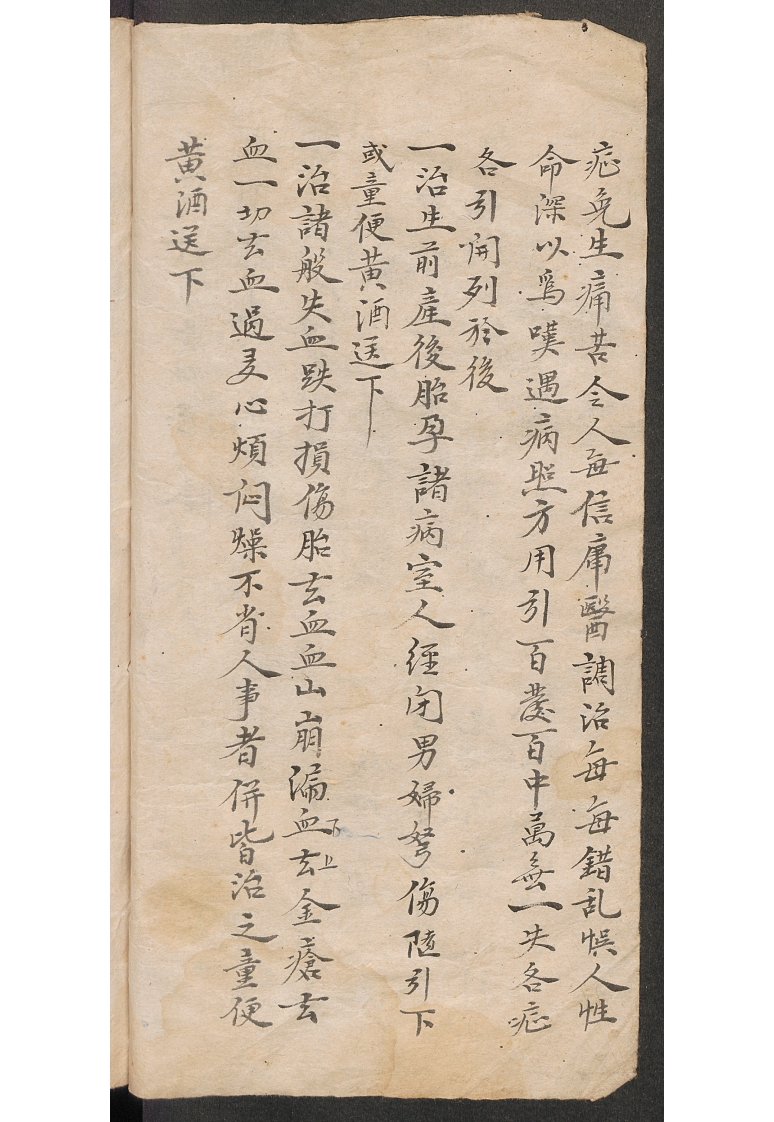 症免生痛苦令人每信庸醫調治每每錯乱悞人性
命深以爲嘆遇病照方用引百發百中萬無一失各症
各引開列於後
一治生前產後胎孕諸病室人經闭男婦努傷隨引下
或童便黄酒送下
一治諸般失血跌打損傷胎去血血山崩漏血去金瘡去
下上
血一切去血過多心煩闷燥不省人事者併皆治之童便
黄酒送下